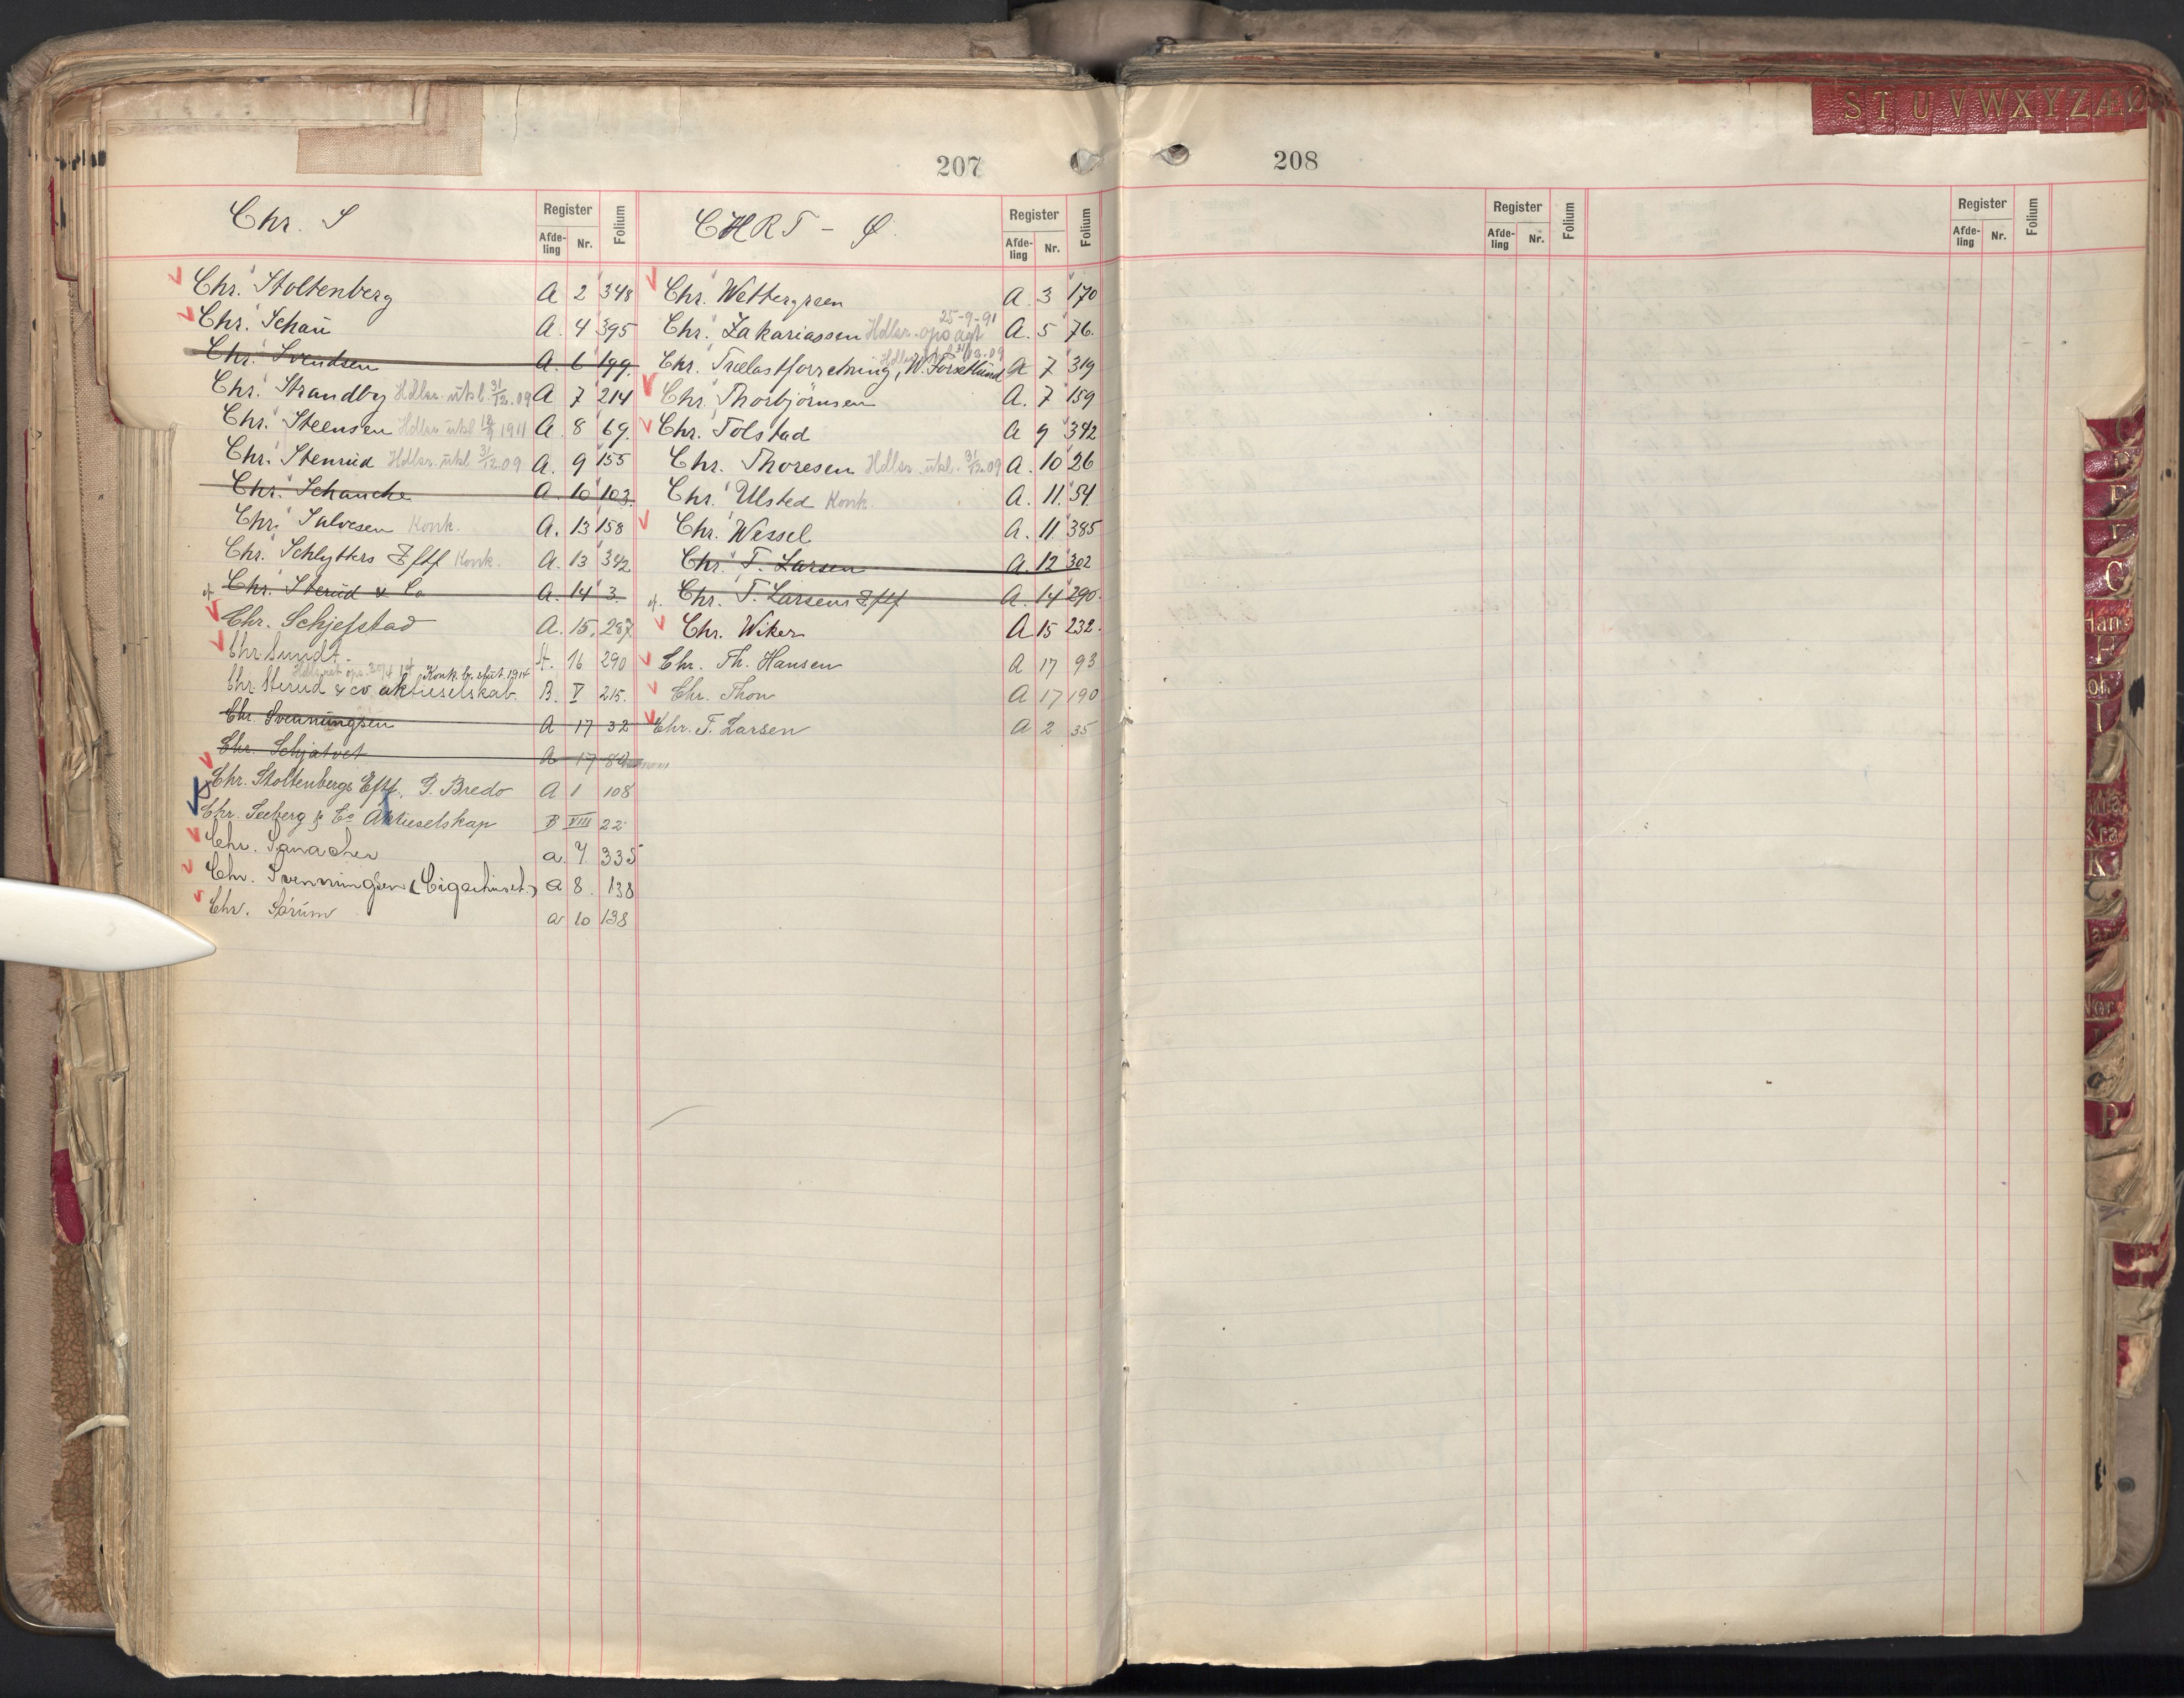 207
Chr. S
Register
Afde-ling
Nr.
Folium
Chr. Stoltenberg A 2 348
Chr. Schau A. 4 395
Chr. Svendsen A. 6 199.
Chr. Strandby Hdlsr. utsl. 31/12.09 A 7 214
Chr. Steensen Hdlsr utsl 1911 A. 8 69.
Chr. Stenrud Hdlsr. utsl 31/12.09 A. 9 155
Chr. Schanche A. 10 103.
Chr. Salvesen Konk. A. 13 158
Chr. Schlytters Eftf Konk. A. 13 342
Chr. Sterud & Co A. 14 3.
Chr. Schjefstad A. 15. 287.
Chr Sundt. A. 16 290
Konk. b. slut. 1914
Chr Sterud & co. aktieselskab. B. V 215.
Chr. Svenningsen A 17 32
Chr. Schjatvet A 17 84
Chr. Stoltenbergs Eftf., G. Bredo A 1 108
Chr. Seeberg & Co Aktieselskap B VIII 22
Chr. a. 7. 335
Chr. Svenningsen (Cigarhuset.) a 8. 138
Chr. Sørum a 10 138
CHR T - Ø.
Register
Afde-ling
Nr.
Folium
Chr. Wettergreen A. 3 170
25-9-91
Chr. Zakariassen Hdlsr. A. 5 76.
31/12.09
Chr. Trælastforretning, W. Forsetlund A 7 319
Chr. Thorbjörnsen A. 7 159
Chr. Tolstad A 9 342
Chr. Thoresen Hdlsr. utsl. 31/12.09 A. 10 26
Chr. Ulsted Konk. A. 11. 54.
Chr. Wessel A. 11 385
Chr. T. Larsen A. 12 302
cf. Chr. T. Larsens Eftf A. 14 290.
Chr. Wiker A 15 232.
Chr. Th. Hansen A 17 93
Chr. Thon A 17 190
Chr. T. Larsen A 2 35
208
Register
Afde-ling
Nr.
Folium
Register
Afde-ling
Nr.
Folium
S T U V W X Y Z Æ Ø
F
G
H
I
K
P